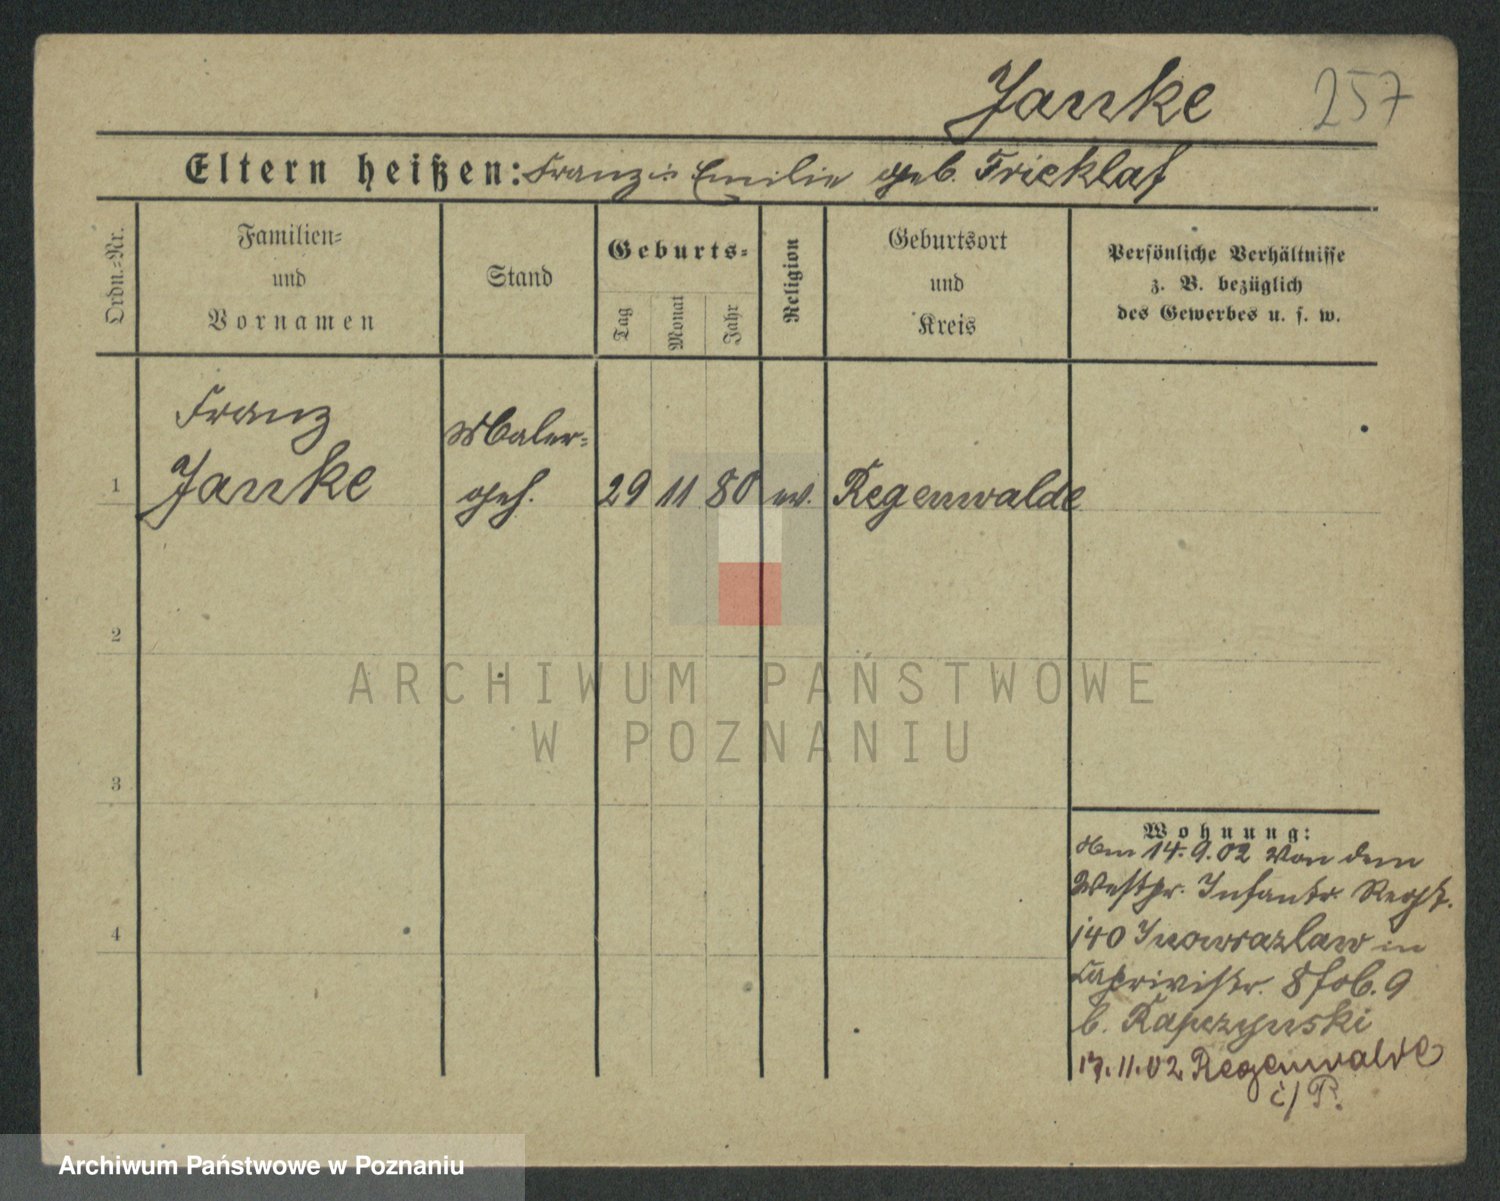 Janke 257
Eltern heißen: Franz u. Emilie geb. Fricklaf
Ordn.-Nr.
Familien-
und
Vornamen
Stand
Geburts-
Tag
Monat
Jahr
Religion
Geburtsort
und
Kreis
Persönliche Verhältnisse
z. B. bezüglich
des Gewerbes u. s. w.
Franz Maler-
1 Janke geh. 29 11 80 ev. Regenwalde
2
ARCHIWUM PAŃSTWOWE
W POZNANIU
3
Wohnung:
14.9.02 Von dem
Westpr. Infantr. Regt.
140 Inowrazlaw in
Caprivistr. 8 b. 9
b. Kapczynski
17.11.02 Regenwalde
i/P.
4
Archiwum Państwowe w Poznaniu